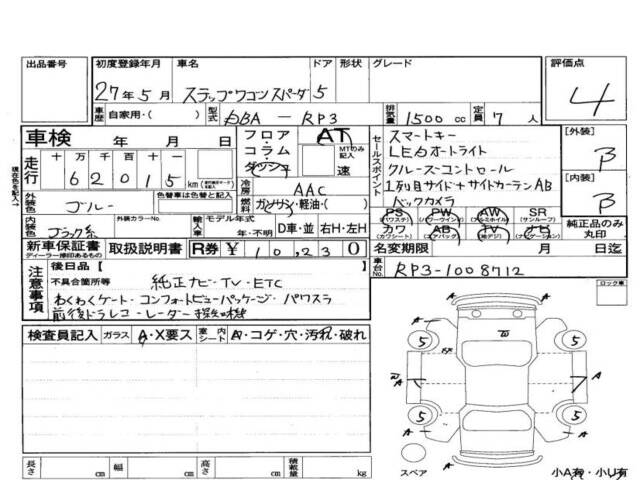 出品番号 初度登録年月 車名 ドア 形状 グレード 評価点
27年5月 ステップワゴン スパーダ 5 4
車歴 自家用・( ) 型式 DBA － RP3 排気量 1500 cc 定員 7 人
車検 年 月 日 フロア・コラム・ダッシュ AT MTのみ記入 速
セールスポイント スマートキー
LEDオートライト
クルーズコントロール
1列目サイド+サイドカーテンAB
バックカメラ
[外装] B
[内装] B
現在色を記入→
走行 十 万 千 百 十 一
6 2 0 1 5 km
冷房 AAC
外装色 ブルー 色替車は色替色 燃料 ガソリン・軽油・( )
内装色 ブラック系 外装カラーNo. 輸入車 モデル年式 年・不明 D車・並 右H・左H
PS (パワステ) PW (パワーウインド) AW (アルミホイル) SR (サンルーフ)
カワ (カワシート) AB (エアバック) TV (地デジ) ナビ (ナビゲーション)
純正品のみ丸印
新車保証書 ディーラー捺印あるもの 取扱説明書 R券 ¥ 10,230
名変期限 月 日迄
車台No. RP3-1008712
注意事項 後日品 [ ]
不具合箇所等 純正ナビ・TV・ETC
わくわくゲート・コンフォートビューパッケージ・パワスラ
前後ドラレコ・レーダー探知機
ロック車
検査員記入 ガラス A・X要ス 室内シート A・コゲ・穴・汚れ・破れ
A A
5 5
A A
5 5
A A
スペア 小A有・小U有
長さ cm 幅 cm 高さ cm 積載量 kg